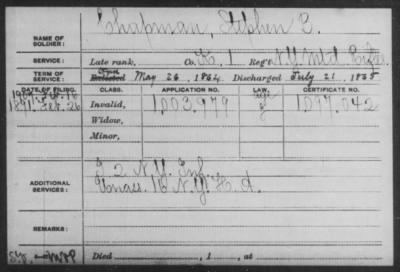 Chapman, Stephen B.
NAME OF SOLDIER:
SERVICE: Late rank, Co. K, 1 Reg't N.Y. Mtd. Rifles
TERM OF SERVICE: Enlisted May 26, 1864 Discharged July 21, 1865
DATE OF FILING. CLASS. APPLICATION NO. LAW. CERTIFICATE NO.
1891 Feb. 26 Invalid, 1,003.979 1,097.042
Widow,
Minor,
ADDITIONAL SERVICES:
G 2 N.Y. Inf.
Unass. 16 N.Y. H.A.
REMARKS:
Died , 1 , at